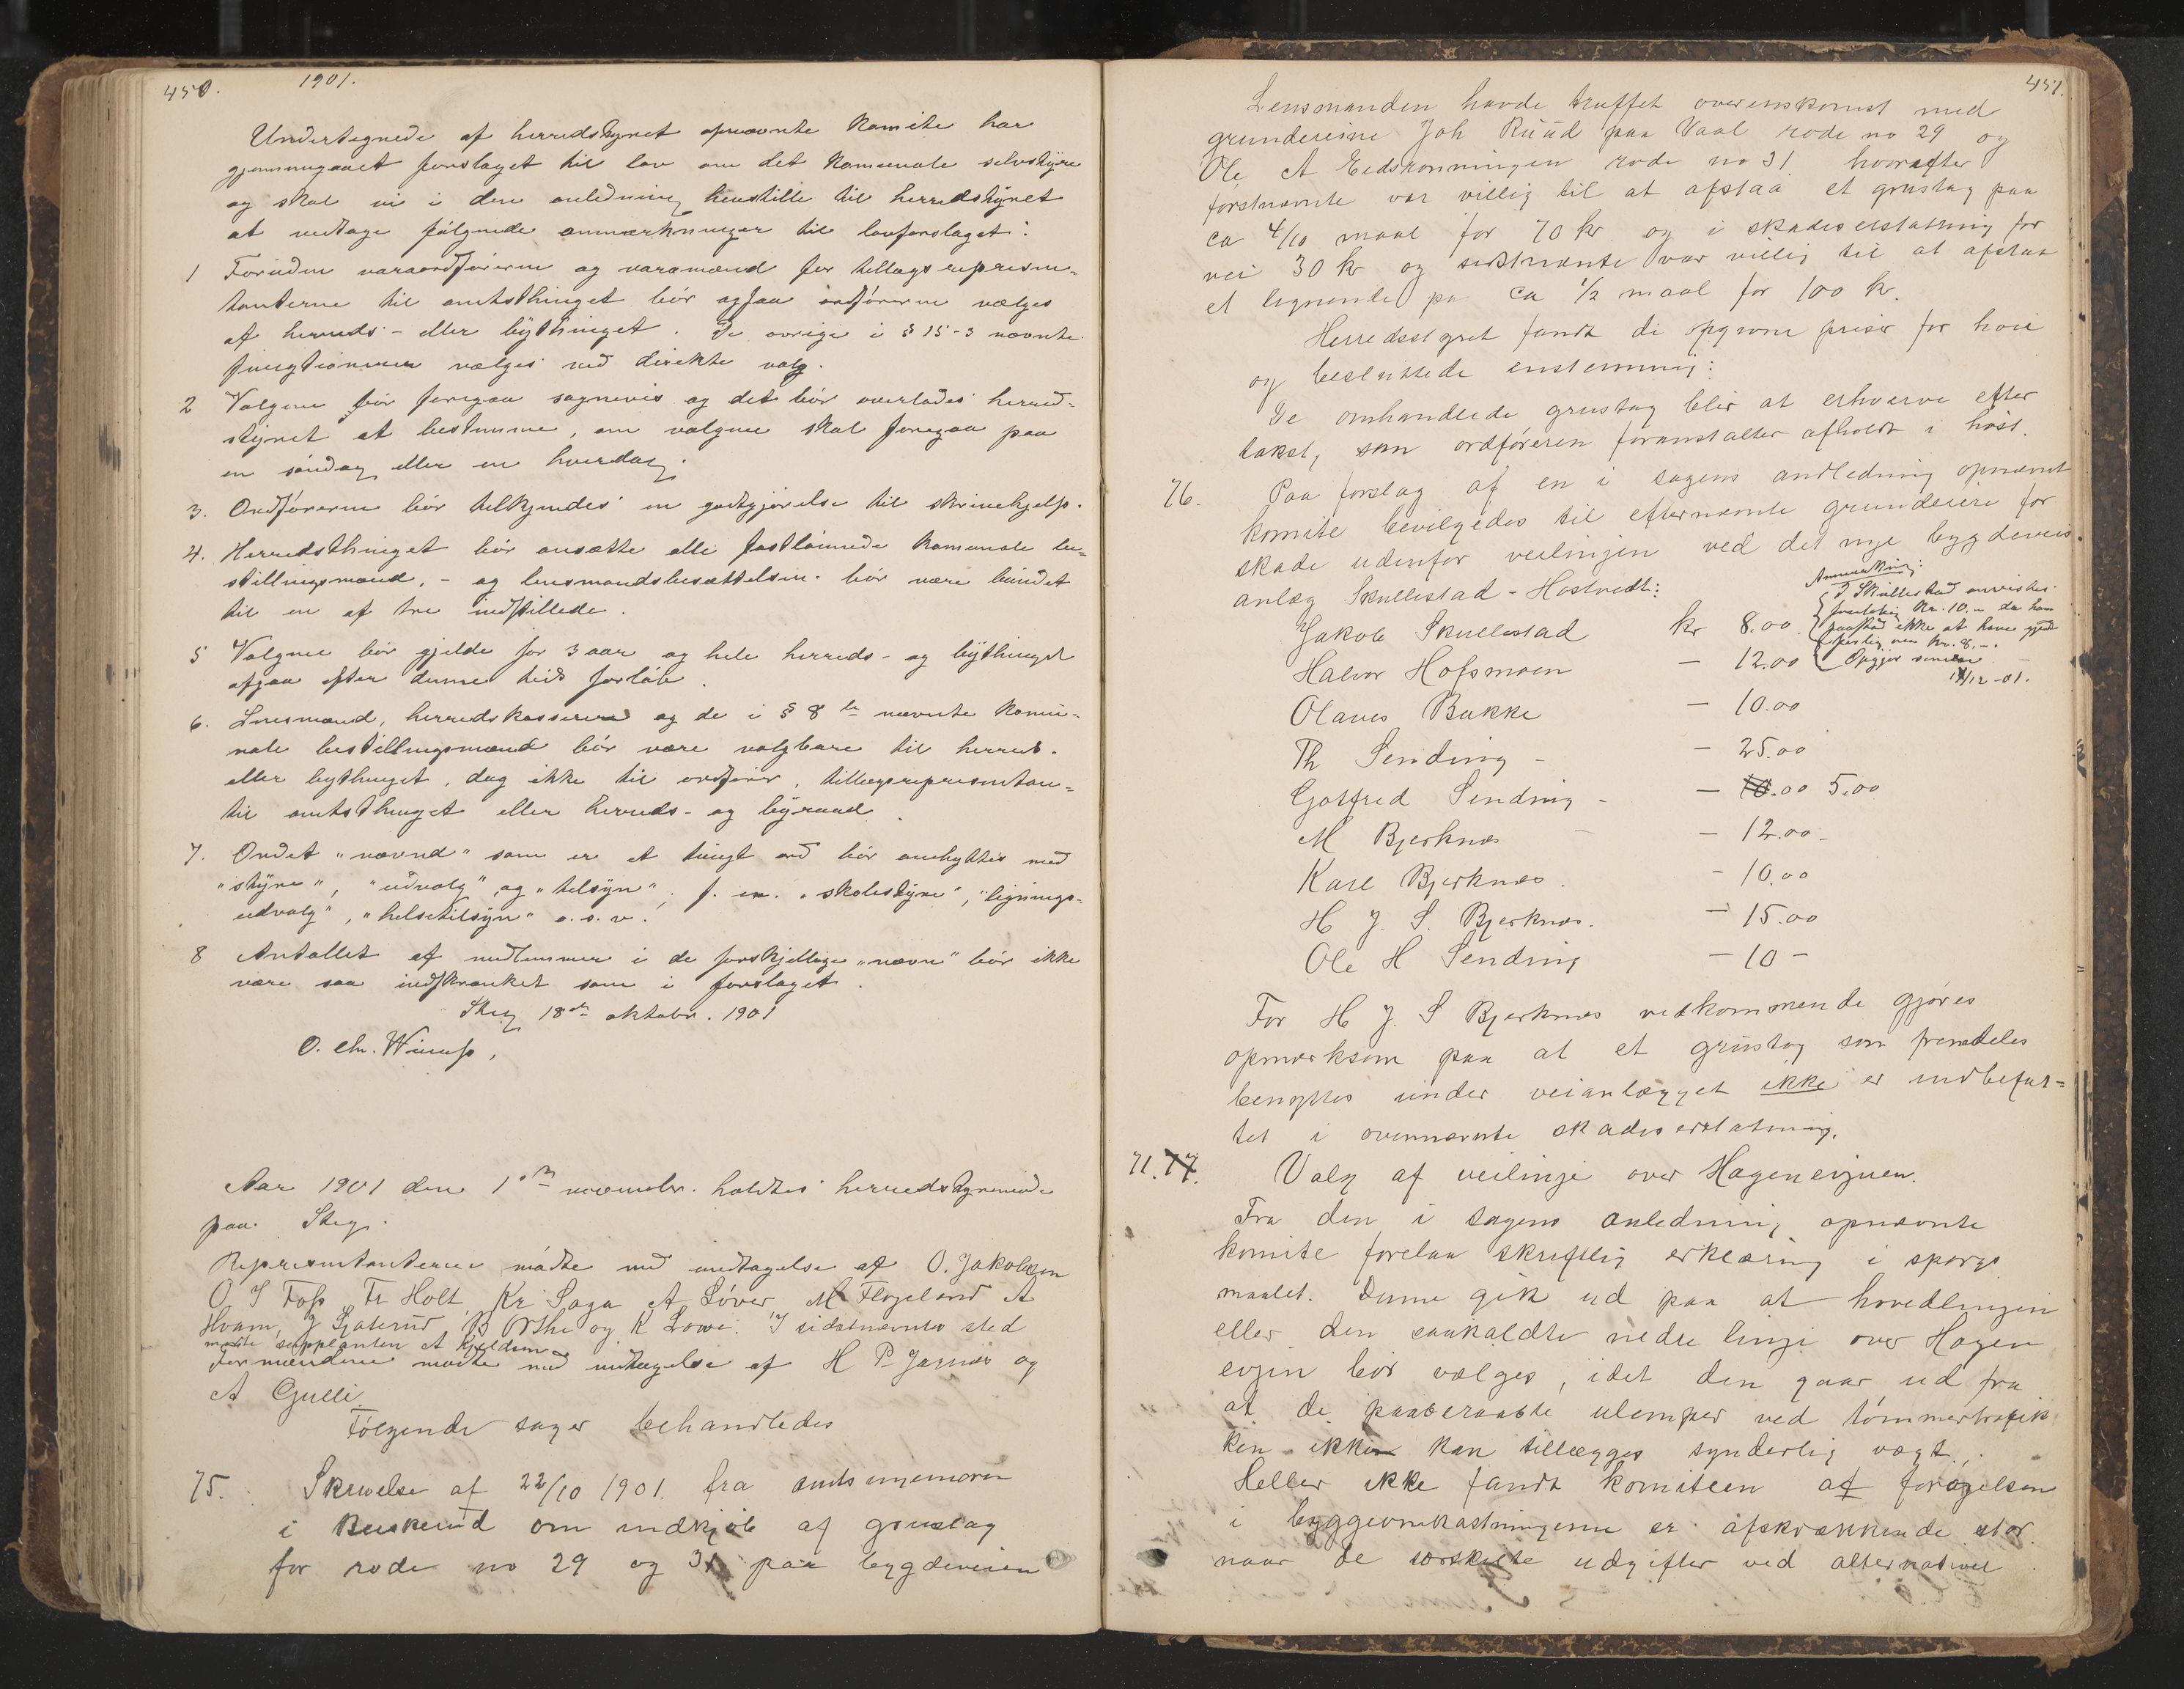 450. 1901.
Undertegnede af herredstyret opnævnte komite har
gjennemgaaet forslaget til lov om det komunale selvstyre
og skal vi i den anledning henstille til herredstyret
at vedtage følgende anmærkninger til lovforslaget:
1 Foruden varaordføreren og varamænd for tillægsrepræsen-
tanterne til amtsthinget bør ogsaa ordføreren vælges
af herreds- eller bythinget. De øvrige i § 15-3 nævnte
fungtionærer vælges ved direkte valg.
2 Valgene bør foregaa sognevis og det bør overlades herred-
styret at bestemme, om valgene skal foregaa paa
en søndag eller en hverdag.
3. Ordføreren bør tilkjendes en godtgjørelse til skrivehjelp.
4. Herredsthinget bør ansætte alle fastlønnede komunale be-
stillingsmænd, - og lensmandsbesættelsen bør være bundet
til en af tre indstillede.
5 Valgene bør gjelde for 3 aar og hele herreds- og bythinget
afgaa efter denne tids forløb.
6. Lensmænd, herredskasserer og de i § 8 nævnte komu-
nale bestillingsmænd bør være valgbare til herred-
eller bythinget, dog ikke til ordfører, tillægsrepresentan-
til amtsthinget eller herreds- og byraad.
7. Ordet "nævnd" som er et tungt ord bør ombyttes med
"styre", "udvalg" og "tilsyn", f. ex. "skolestyre", "lignings-
udvalg", "helsetilsyn" o. s. v.
8 Antallet af medlemmer i de forskjellige "nævn" bør ikke
være saa indskrænket som i forslaget.
Steg 18de oktober. 1901
O. Chr.
Aar 1901 den 1ste november holdtes herredstyremøde
paa Steg.
Repræsentanterne mødte med undtagelse af O. Jakobsen
O J Foss Fr Holt, Kr Saga A Løver, M Flageland A
Hvam, J B og K Lowe. I sidstnævntes sted
mødte suplanten A Kjeldsen
Formændene mødte med undtagelse af H P Jarnæs og
A Gulli
Følgende sager behandledes
75. Skrivelse af 22/10 1901. fra amtsingeniøren
i Buskerud om indkjøb af grustag
for rode no 29 og 31 paa bygdeveien
451.
Lensmanden havde truffet overenskomst med
grundeierne Joh Ruud paa Vaal rode no 29 og
Ole A Eidskommingen rode no 31 hvorefter
førstnævnte var villig til at afstaa et grustag paa
ca 4/10 maal for 70 kr og i skadeserstatning for
vei 30 kr og sidstnævnte var villig til at afstaa
et lignende paa ca 1/2 maal for 100 kr.
Herredsstyret fandt de opgivne priser for høie
og besluttede enstemmig:
De omhandlede grustag blir at erhverve efter
takst, som ordføreren foranstalter afholdt i høst.
76. Paa forslag af en i sagens andledning opnævnt
komite bevilgedes til efternævnte grundeiere for
skade udenfor veilinjen ved det nye bygdeveis
anlæg Skullestad - Hostvedt:
Jakob Skullestad kr 8.00
Anmerkning:
J Skullestad anvistes
foreløbig kr. 10.- da han
paastod ikke at have
kr. 8.-.
Opgjør senere
12-01.
Halvor Hofsmoen - 12.00
Olaves Bakke - 10.00
Th Sending - 25.00
Gotfred Sending - 10.00 5.00
M Bjerknes - 12.00
Karl Bjerknes. - 10.00
H J. S. Bjerknes. - 15.00
Ole H Sending - 10 -
For H J. S Bjerknes vedkommende gjøres
opmerksom paa at et grustag som fremdeles
benyttes under veianlægget ikke er indbefat-
tet i ovennævnte skadeserstatning.
71. 77. Valg af veilinje over Hageneigjuen.
Fra den i sagens anledning opnævnte
komite forelaa skriftlig erklæring i spørgs
maalet. Denne gik ud paa at hovedlinjen
eller den saakaldte nedre linje over Hagen
eigjen bør vælges, idet den gaar ud fra
at de paaberaabte ulemper ved tømmertrafik
ken ikke kan tillægges synderlig vægt.
Heller ikke fandt komiteen at forøgelsen
i byggeomkostningerne er afskrækkende stor
naar de særskilte udgifter ved alternativet